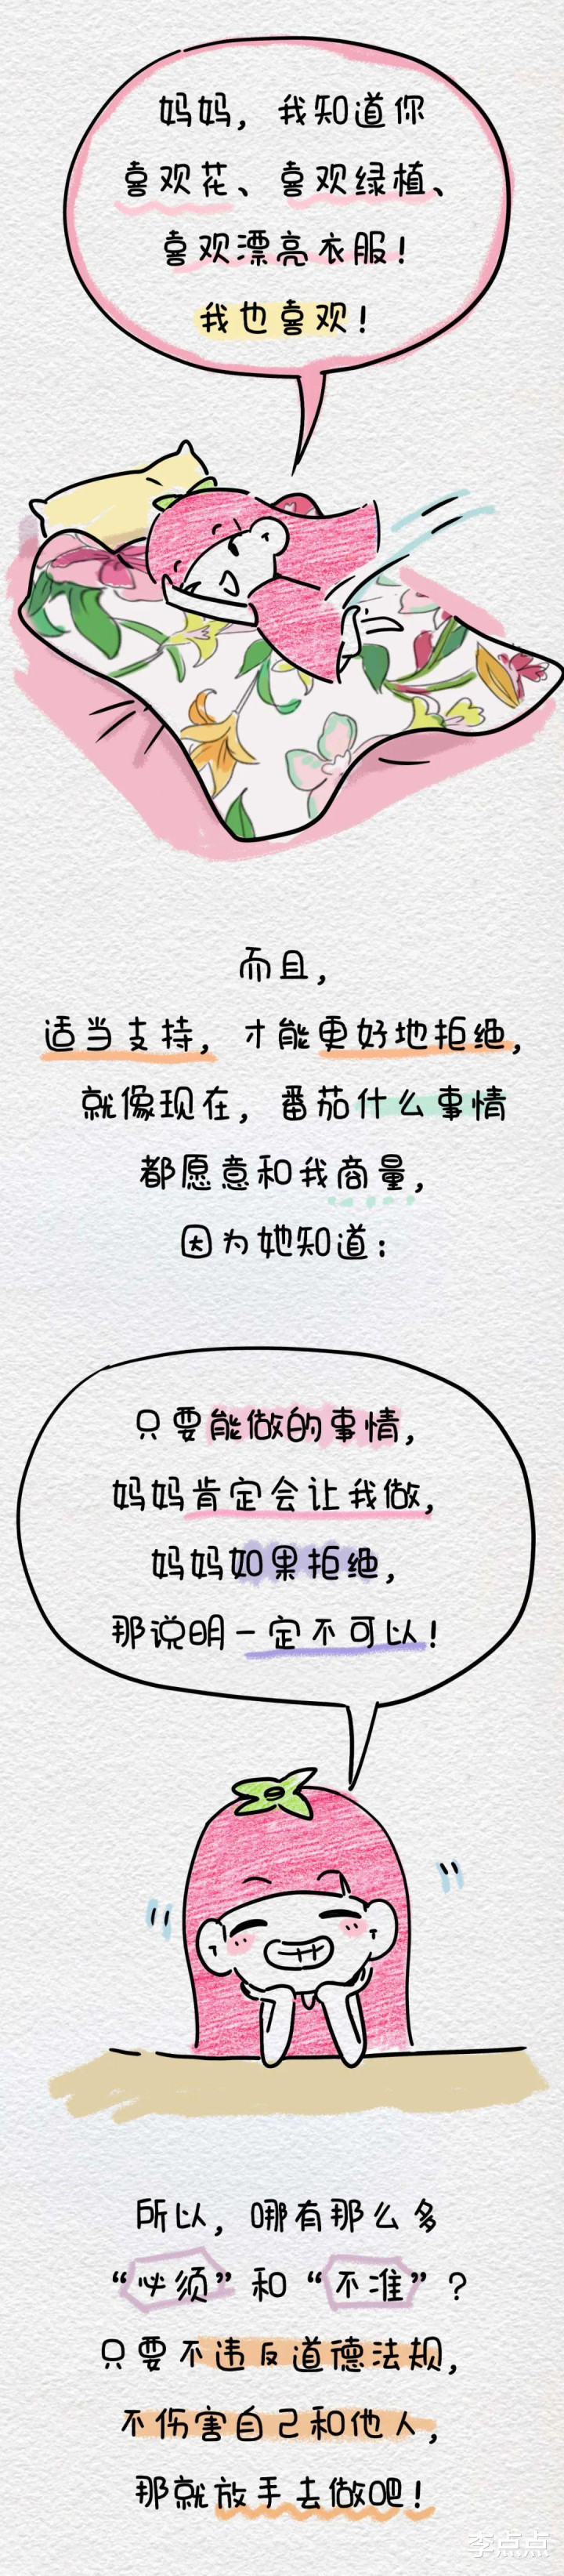 妈妈，我知道你
喜欢花、喜欢绿植、
喜欢漂亮衣服！
我也喜欢！
而且，
适当支持，才能更好地拒绝，
就像现在，番茄什么事情
都愿意和我商量，
因为她知道：
只要能做的事情，
妈妈肯定会让我做，
妈妈如果拒绝，
那说明一定不可以！
所以，哪有那么多
“必须”和“不准”？
只要不违反道德法规，
不伤害自己和他人，
那就放手去做吧！
李点点